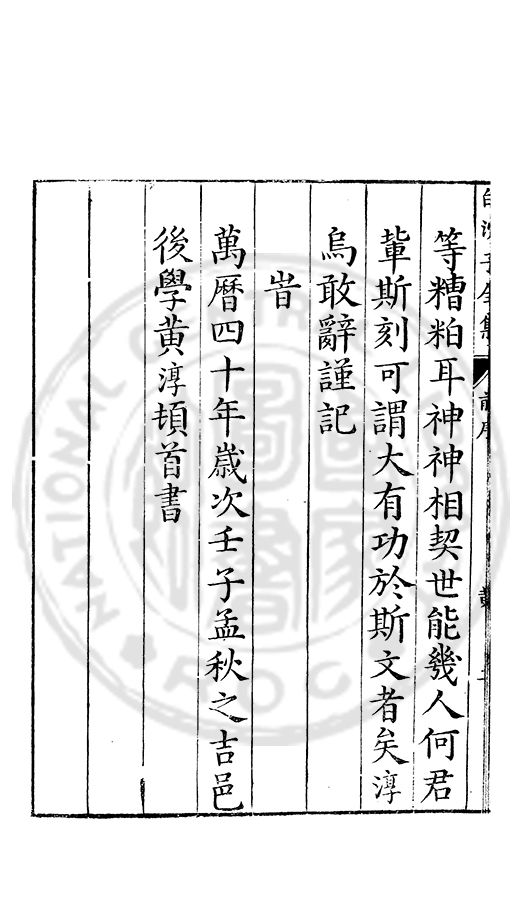 等糟粕耳神神相契世能幾人何君
輩斯刻可謂大有功於斯文者矣淳
烏敢辭謹記
旹
萬曆四十年歲次壬子孟秋之吉邑
後學黃淳頓首書
NATIONAL CENTRAL